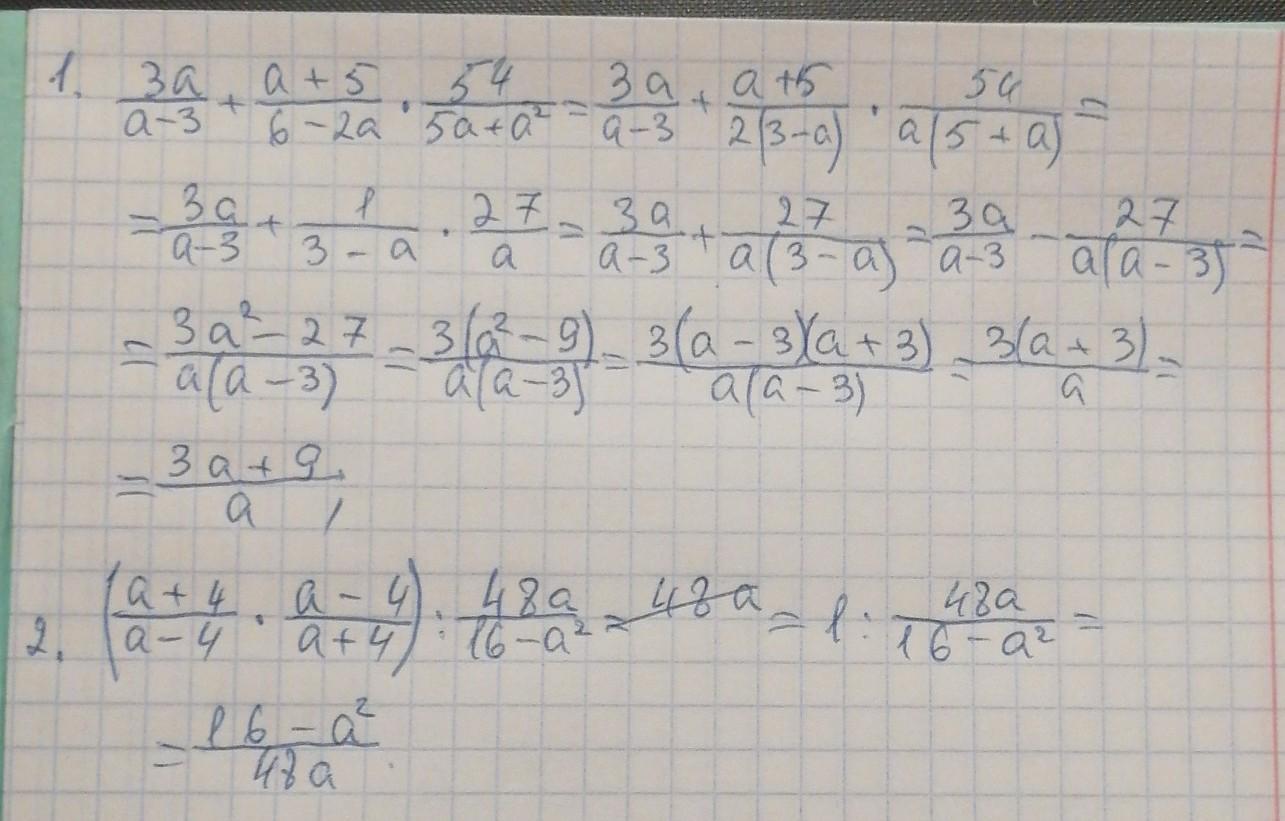 1. 3a/(a-3) + (a+5)/(6-2a) · 54/(5a+a²) = 3a/(a-3) + (a+5)/(2(3-a)) · 54/(a(5+a)) =
= 3a/(a-3) + 1/(3-a) · 27/a = 3a/(a-3) + 27/(a(3-a)) = 3a/(a-3) - 27/(a(a-3)) =
= (3a²-27)/(a(a-3)) = 3(a²-9)/(a(a-3)) = 3(a-3)(a+3)/(a(a-3)) = 3(a+3)/a =
= (3a+9)/a;
2. ((a+4)/(a-4) · (a-4)/(a+4)) : 48a/(16-a²) = 48a = 1 : 48a/(16-a²) =
= (16-a²)/48a.